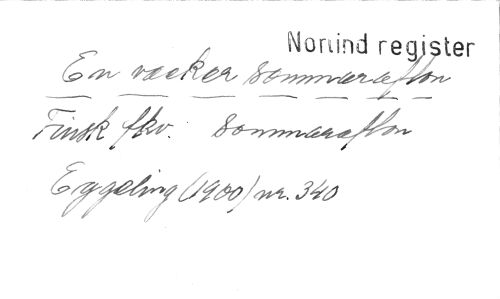 Norlind register
En vacker sommarafton
Finsk fkv. Sommarafton
Eggeling (1900) nr. 340